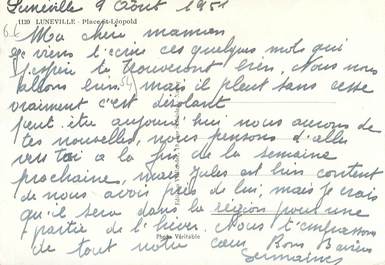 Lunéville 9 Août 1951
1139 LUNEVILLE - Place St-Léopold
Ma chère maman
je viens t'écrire ces quelques mots qui
j'espère te trouveront bien. Nous nous
allons bien, mais il pleut sans cesse
vraiment c'est désolant
peut être aujourd'hui nous aurons de
tes nouvelles, nous pensons d'aller
vers toi à la fin de la semaine
prochaine, mais Jules est bien content
de nous avoir près de lui, mais je crois
qu'il sera dans la région pour une
partie de l'hiver. Nous t'embrassons
de tout notre cœur Bons Baisers
Germaine
Photo Véritable